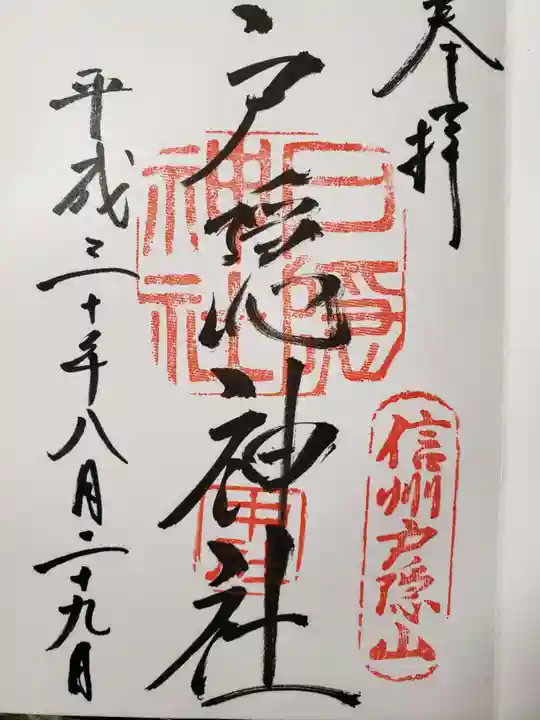 奉拝
信州戸隠山
戸隠神社
戸隠神社
中社
平成三十年八月二十九日